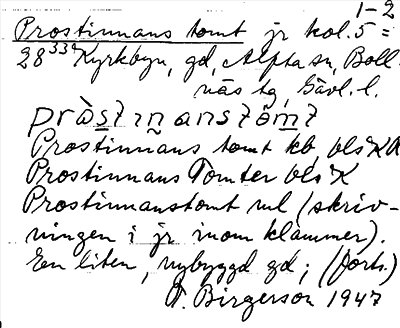 1-2
Prostinnans tomt jr kol. 5 =
28³³ᵗ Kyrkbyn, gd, Alfta sn, Boll-
näs tg, Gävl. l.
pràs̲tın̲ans tom̲t
Prostinnans tomt kb, vlsKA
Prostinnans Tomter vlsK
Prostinnanstomt ul (skriv-
ningen i jr inom klammer).
En liten, nybyggd gd; (forts.)
T. Birgerson 1947